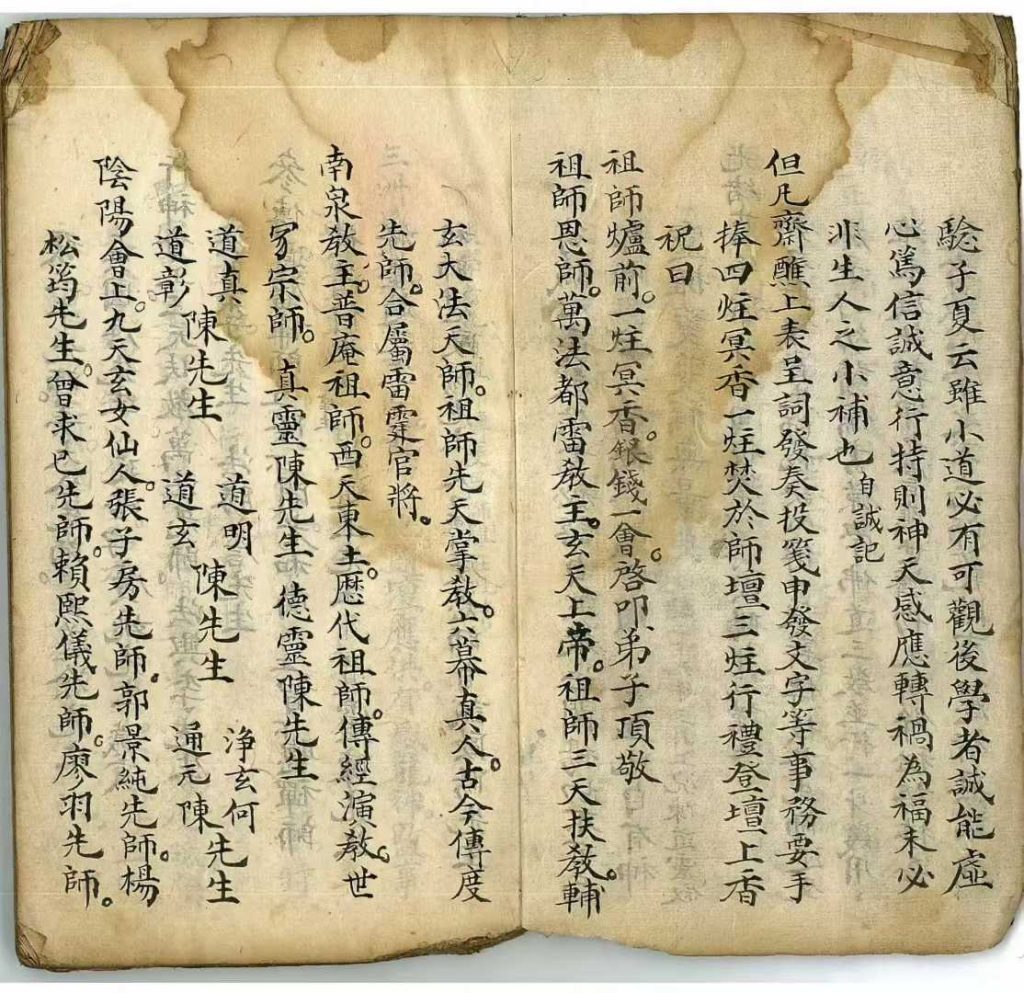 驗子夏云雖小道必有可觀後學者誠能虛
心篤信誠意行持則神天感應轉禍為福未必
非生人之小補也 自誠記
但凡齋醮上表呈詞發奏投箋申發文字等事務要手
捧四炷冥香一炷焚於師壇三炷行禮登壇上香
祝曰
祖師爐前。一炷冥香。銀錢一會。啓叩弟子頂敬
祖師恩師。萬法都雷教主。玄天上帝。祖師三天扶教。輔
玄大法天師。祖師先天掌教。六幕真人。古今傳度
先師。合屬雷霆官將。
南泉教主。普庵祖師。西天東土。歷代祖師。傳經演教。世
冢宗師。真靈陳先生 德靈陳先生
道真 陳先生 道明 陳先生 淨玄何先生
道彰 道玄 通元陳
陰陽會上。九天玄女仙人。張子房先師。郭景純先師。楊
松筠先生。曾求巳先師。賴熙儀先師。廖羽先師。